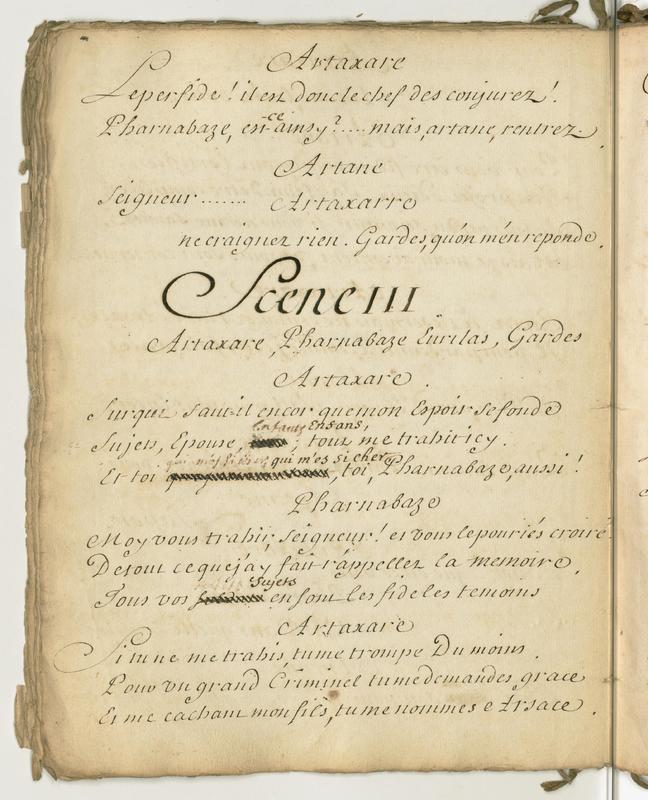 Artaxare
Le perfide ! il est donc le chef des conjurez !
Pharnabaze, est-ce ainsy ? .... mais, artane, rentrez.
Artane
Seigneur .......
Artaxarre
ne craignez rien. Gardes, qu'on m'en reponde.
Scene III
Artaxare, Pharnabaze Euritas, Gardes
Artaxare.
Sur qui faut-il encor que mon Espoir se fonde
enfants Enfans,
Sujets, Epouse, , tout me trahit icy.
qui m'es si cher, qui m'es si cher
Et toi , toi, Pharnabaze, aussi !
Pharnabaze
Moy vous trahir, Seigneur ! et vous le pouriés croire
De tout ce que j'ay fait r'appellez la memoire,
Sujets
Tous vos en sont les fideles temoins
Artaxare
Si tu ne me trahis, tu me trompe Du moins.
Pour un grand Criminel tu me demandes grace
Et me cachant mon fils, tu me nommes Arsace.